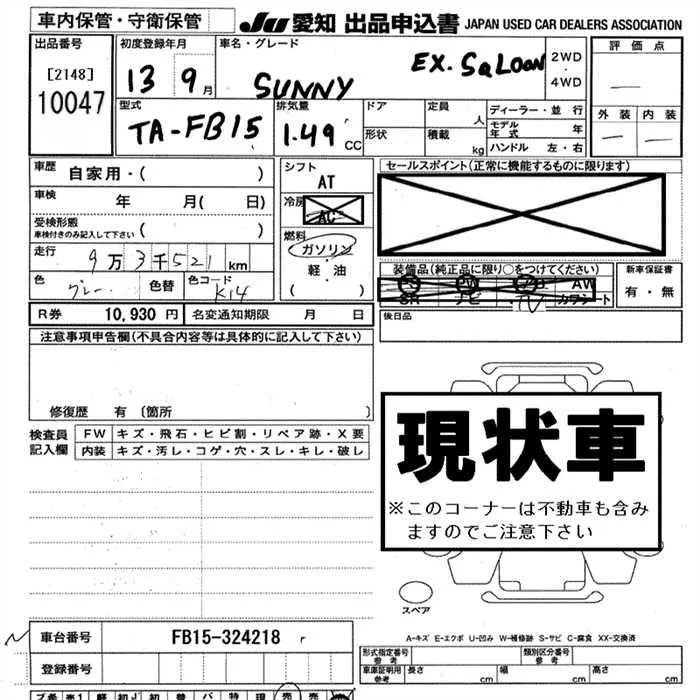 車内保管・守衛保管
JU 愛知 出品申込書 JAPAN USED CAR DEALERS ASSOCIATION
出品番号
[2148]
10047
初度登録年月
13 9月
車名・グレード
SUNNY EX. SaLOON
2WD
・
4WD
評価点
—
外装 内装
— —
型式
TA-FB15
排気量
1.49 CC
ドア
形状
定員 人
積載 kg
ディーラー・並行
モデル年式 年
ハンドル 左・右
車歴 自家用・( )
車検 年 月( 日)
受検形態
車検付きのみ記入して下さい ( )
走行 9万3千521km
色 グレー 色替 色コード K14
シフト
AT
冷房
AC
燃料
ガソリン
・
軽・油
( )
セールスポイント(正常に機能するものに限ります)
装備品(純正品に限り○をつけてください)
PS PW AW
SR ナビ・TV カワシート
新車保証書
有・無
R券 10,930円 名変通知期限 月 日
後日品
注意事項申告欄(不具合内容等は具体的に記入して下さい)
修復歴 有〔箇所 〕
検査員記入欄
FW キズ・飛石・ヒビ割・リペア跡・X要
内装 キズ・汚レ・コゲ・穴・スレ・キレ・破レ
現状車
※このコーナーは不動車も含み
ますのでご注意下さい
スペア
A-キズ E-エクボ U-凹み W-補修跡 S-サビ C-腐食 XX-交換済
車台番号 FB15-324218 r
登録番号
形式指定番号 参考
類別区分番号 参考
車庫証明用 参考 長さ cm 幅 cm 高さ cm